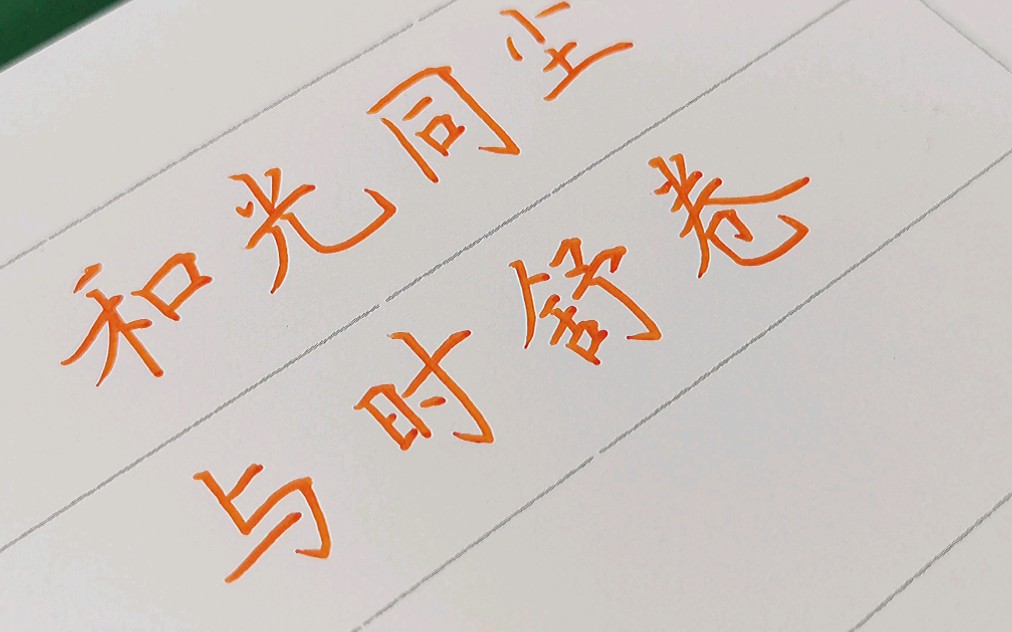 和光同尘
与时舒卷